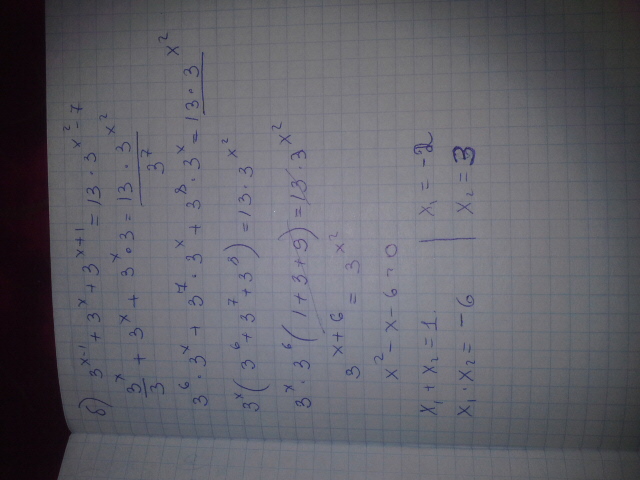 б) 3^{x-1} + 3^x + 3^{x+1} = 13 · 3^{x^2-7}
3^x/3 + 3^x + 3^x · 3 = 13 · 3^{x^2}/3^7
3^6 · 3^x + 3^7 · 3^x + 3^8 · 3^x = 13 · 3^{x^2}
3^x (3^6 + 3^7 + 3^8) = 13 · 3^{x^2}
3^x · 3^6 (1 + 3 + 9) = 13 · 3^{x^2}
3^{x+6} = 3^{x^2}
x^2 - x - 6 = 0
x_1 + x_2 = 1 | x_1 = -2
x_1 · x_2 = -6 | x_2 = 3